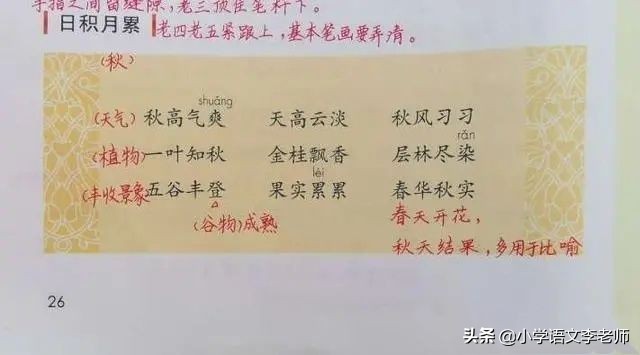 手指之间留缝隙,老三顶住笔杆下。
日积月累 老四老五紧跟上,基本笔画要弄清。
(秋)
shuāng
(天气)秋高气爽 天高云淡 秋风习习
rǎn
(植物)一叶知秋 金桂飘香 层林尽染
léi
(丰收景象)五谷丰登 果实累累 春华秋实
(谷物)成熟 春天开花,
秋天结果,多用于比喻
26
头条 @小学语文李老师